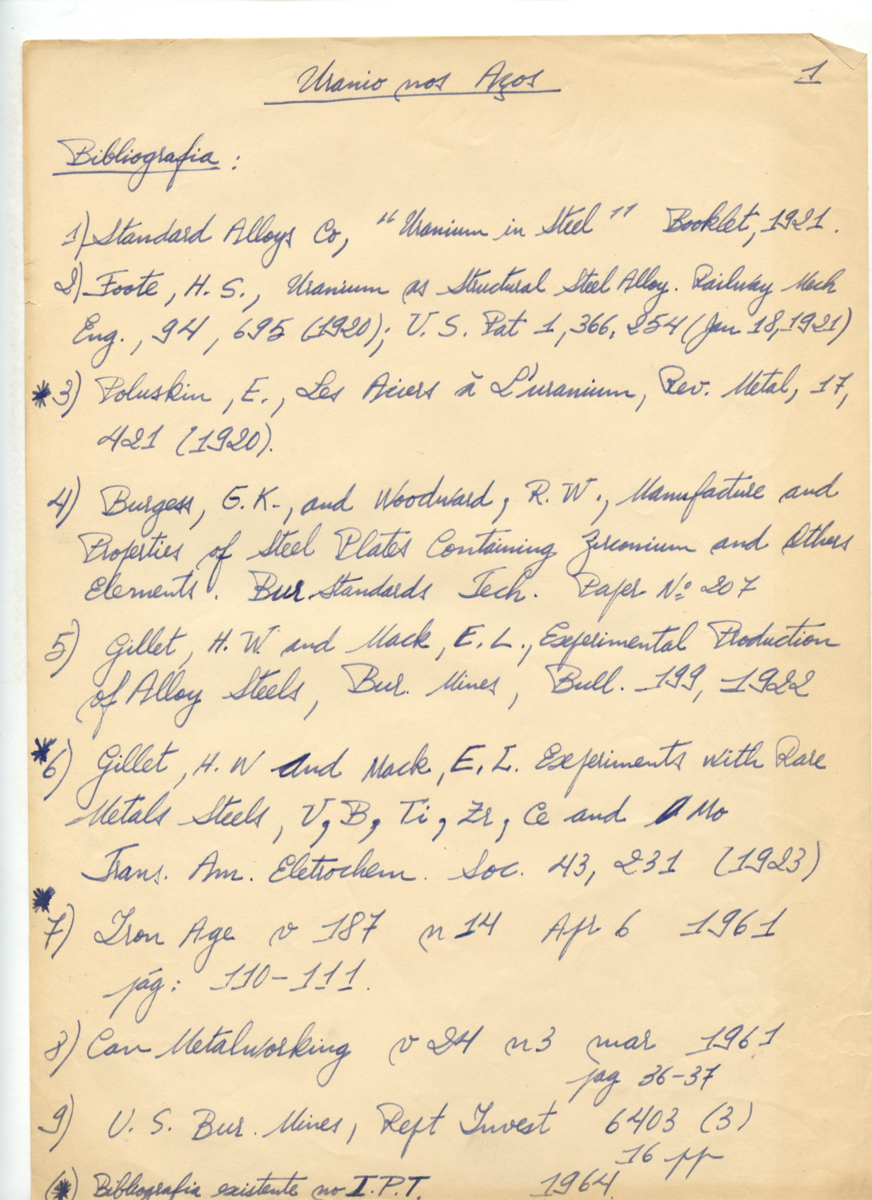 Uranio nos Aços 1
Bibliografia :
1) Standard Alloys Co, "Uranium in Steel" Booklet, 1921.
2) Foote, H. S., Uranium as Structural Steel Alloy. Railway Mech
Eng., 94, 695 (1920); U. S. Pat 1,366,254 (Jan 18, 1921)
* 3) Poluskin, E., Les Aciers à L'uranium, Rev. Metal, 17,
421 (1920).
4) Burgess, G. K., and Woodward, R. W., Manufacture and
Properties of Steel Plates Containing Zirconium and Others
Elements. Bur. Standards Tech. Paper Nº 207
5) Gillet, H. W. and Mack, E. L., Experimental Production
of Alloy Steels, Bur. Mines, Bull. 199, 1922
* 6) Gillet, H. W and Mack, E. L. Experiments with Rare
Metals Steels, U, B, Ti, Zr, Ce and Mo
Trans. Am. Eletrochem. Soc. 43, 231 (1923)
* 7) Iron Age v 187 n 14 Apr 6 1961
pág: 110-111.
8) Can Metalworking v 24 n 3 mar 1961
pag 36-37
9) U. S. Bur. Mines, Rept Invest 6403 (3)
16 pp
(*) Bibliografia existente no I.P.T. 1964.